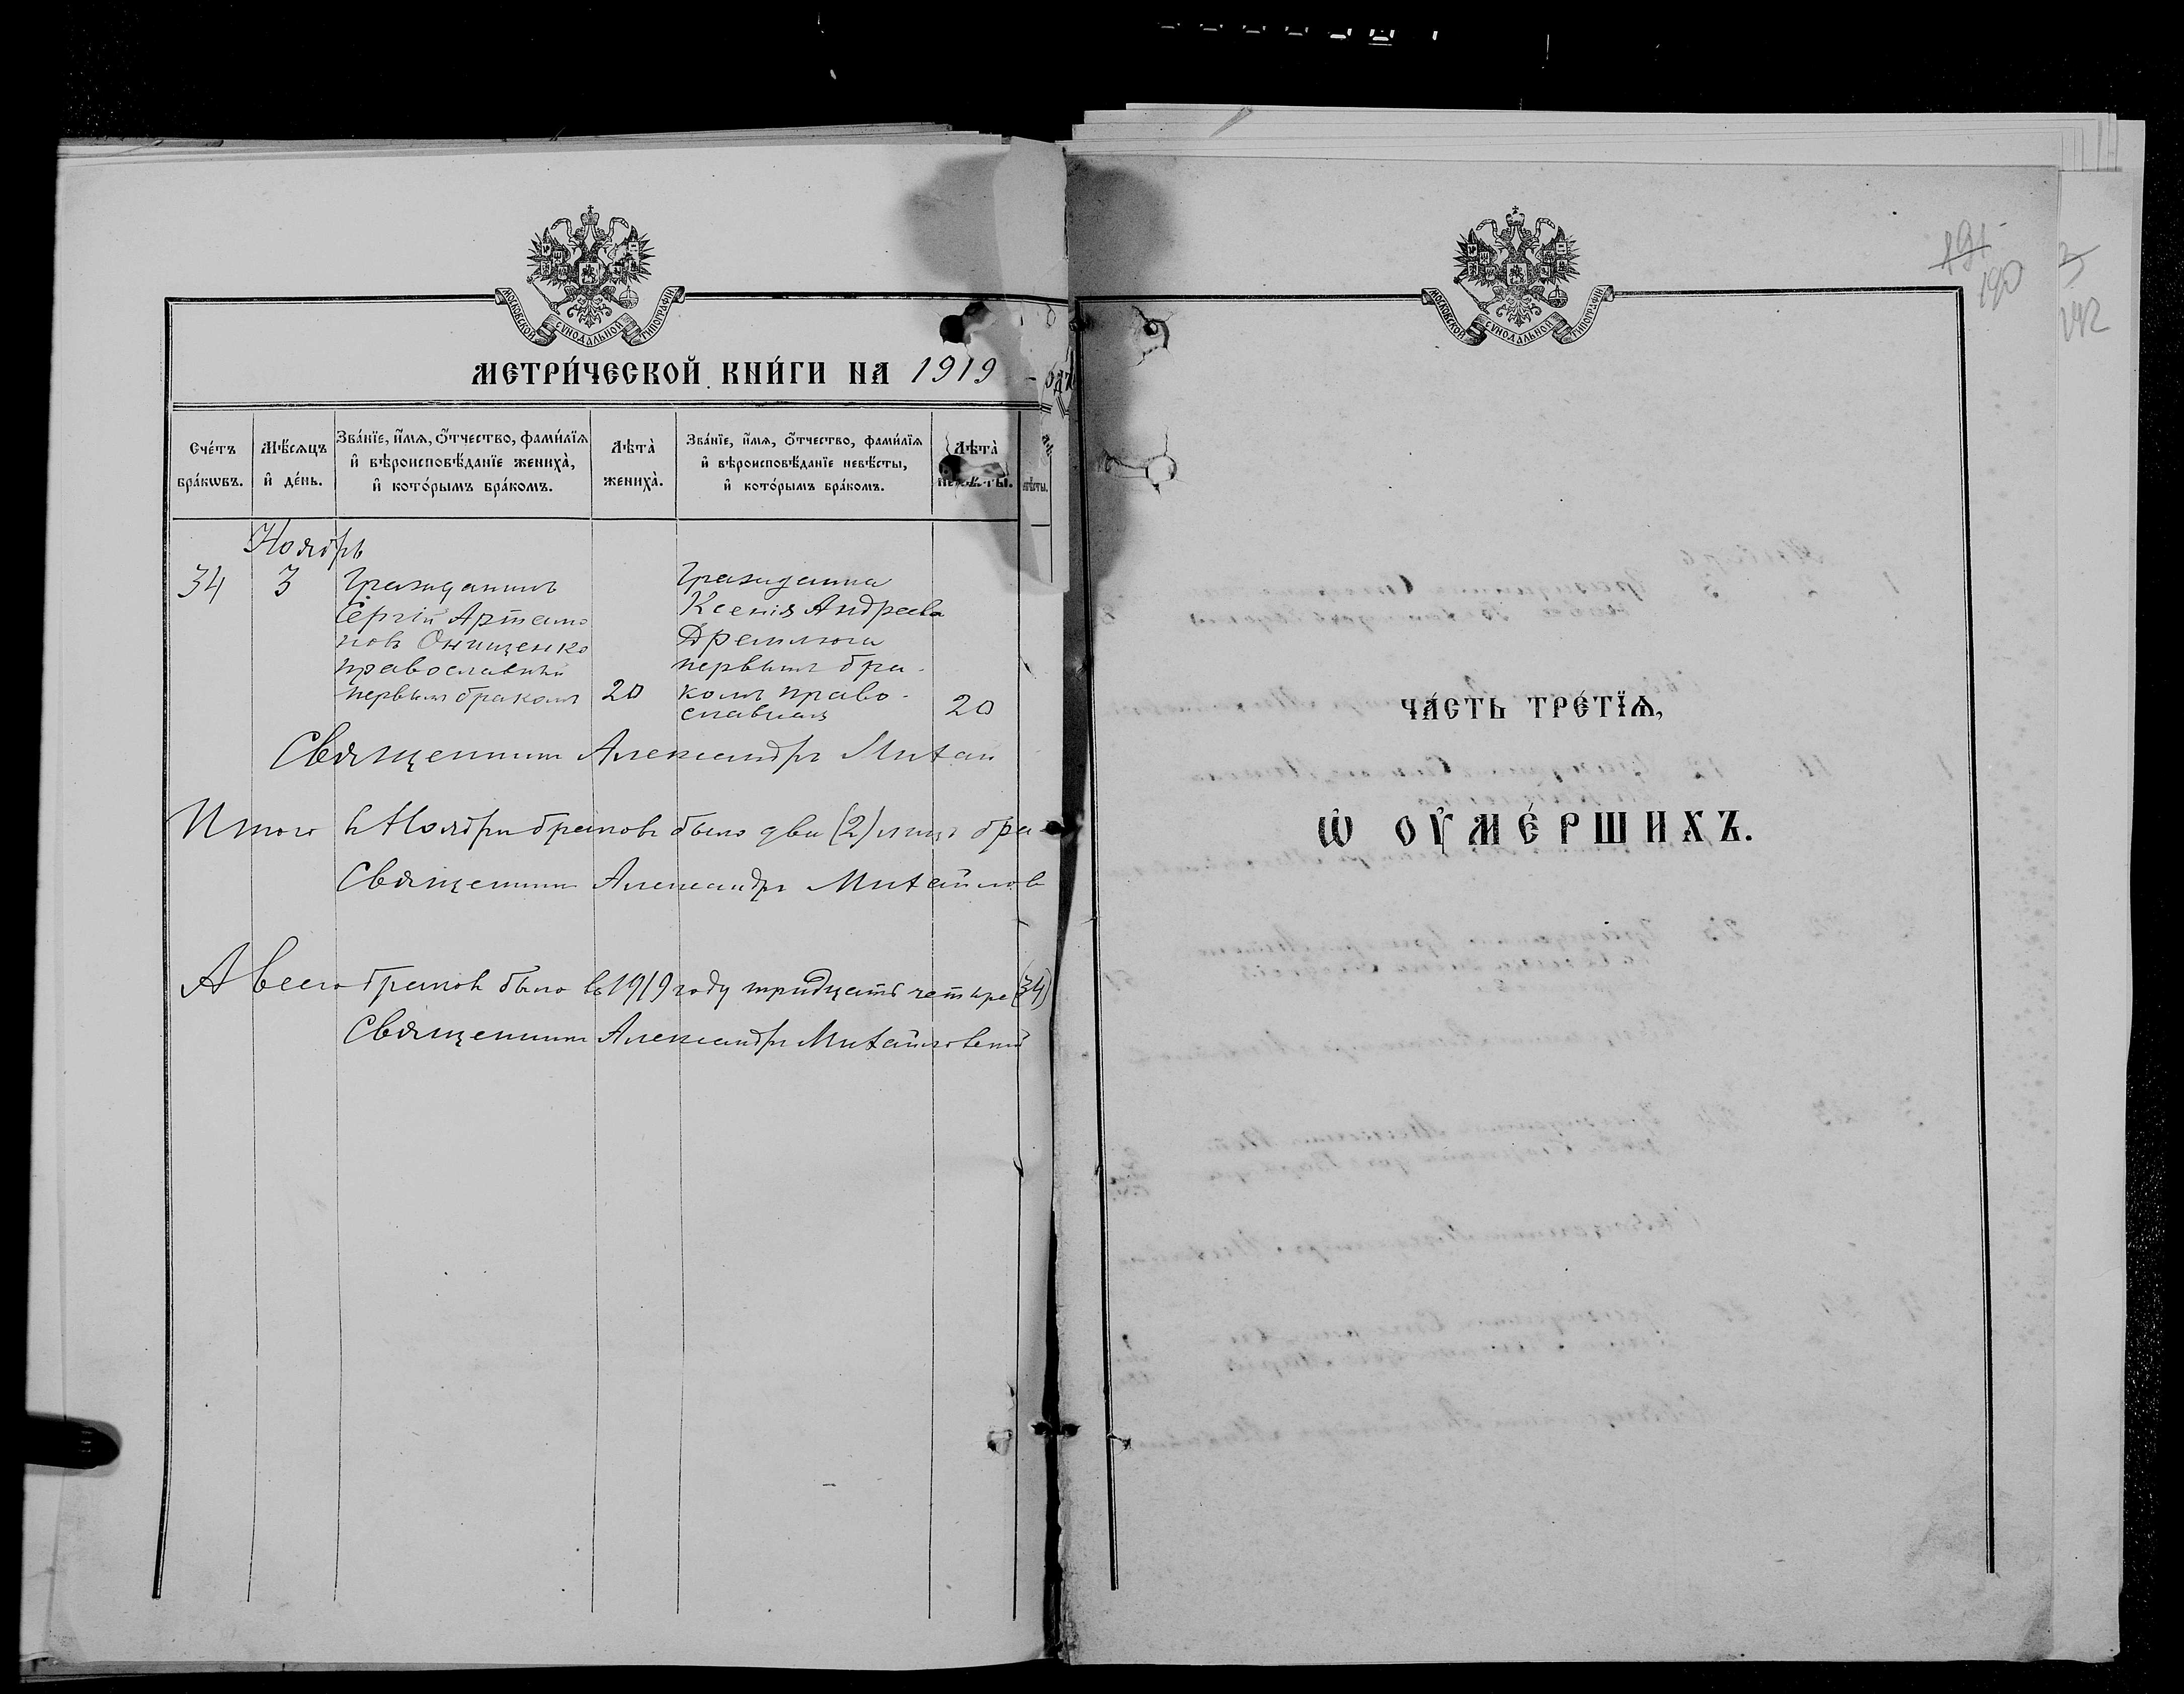 МОСКОВСКОЙ СѴНОДАЛЬНОЙ ТИПОГРАФІИ
МЕТРИ́ЧЕСКОЙ КНИ́ГИ НА 1919
Сче́тъ бра́кѡвъ.
Мѣ́сѧцъ и҆ де́нь.
Зва́нїе, и҆́мѧ, ѻ҆́тчество, фами́лїѧ
и҆ вѣроисповѣ́данїе жениха̀,
и҆ кото́рымъ бра́комъ.
Лѣта̀ жениха̀.
Зва́нїе, и҆́мѧ, ѻ҆́тчество, фами́лїѧ
и҆ вѣроисповѣ́данїе невѣ́сты,
и҆ кото́рымъ бра́комъ.
Лѣта̀
Ноябрь
34 3
Гражданинъ
Сергій Артамо
новъ Онищенко
православный
первымъ бракомъ
20
Гражданка
Ксенія Андреева
Дремлюга
первымъ бра-
комъ право-
славная
20
Священникъ Александръ Михаи
Итого в Ноябрѣ браковъ было два (2)
Священникъ Александръ Михайлов
А всего браков было въ 1919 году тридцать четыре (34)
Священникъ Александръ Михайловскій
МОСКОВСКОЙ СѴНОДАЛЬНОЙ ТИПОГРАФІИ
191
190
142
ЧА́СТЬ ТРЕ́ТЇѦ,
Ѡ҆ ОУ҆МЕ́РШИХЪ.